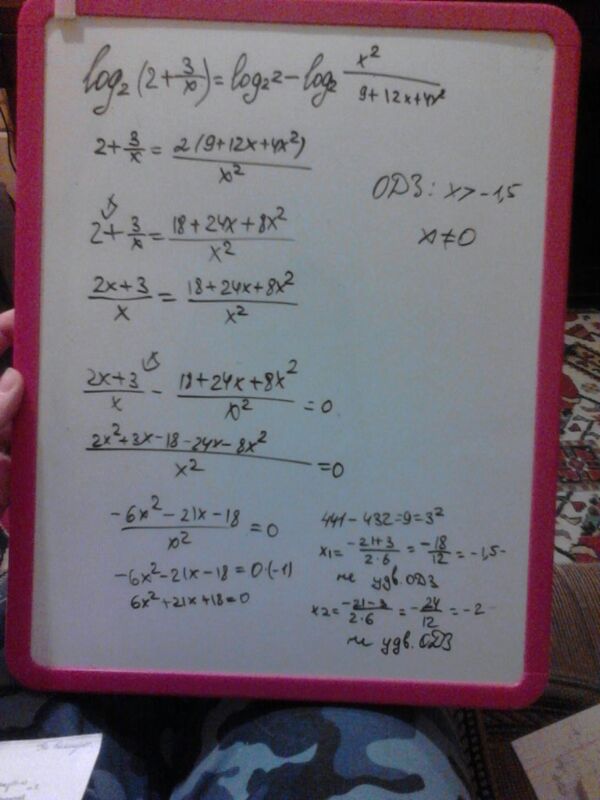 log₂(2 + 3/x) = log₂2 - log₂ x²/(9+12x+4x²)
2 + 3/x = 2(9+12x+4x²)/x²
ОДЗ: x > -1,5
x ≠ 0
2 + 3/x = (18+24x+8x²)/x²
(2x+3)/x = (18+24x+8x²)/x²
(2x+3)/x - (18+24x+8x²)/x² = 0
(2x²+3x-18-24x-8x²)/x² = 0
(-6x²-21x-18)/x² = 0
-6x²-21x-18=0·(-1)
6x²+21x+18=0
441-432=9=3²
x₁= (-21+3)/(2·6) = -18/12 = -1,5-
не удв. ОДЗ
x₂= (-21-3)/(2·6) = -24/12 = -2
не удв. ОДЗ